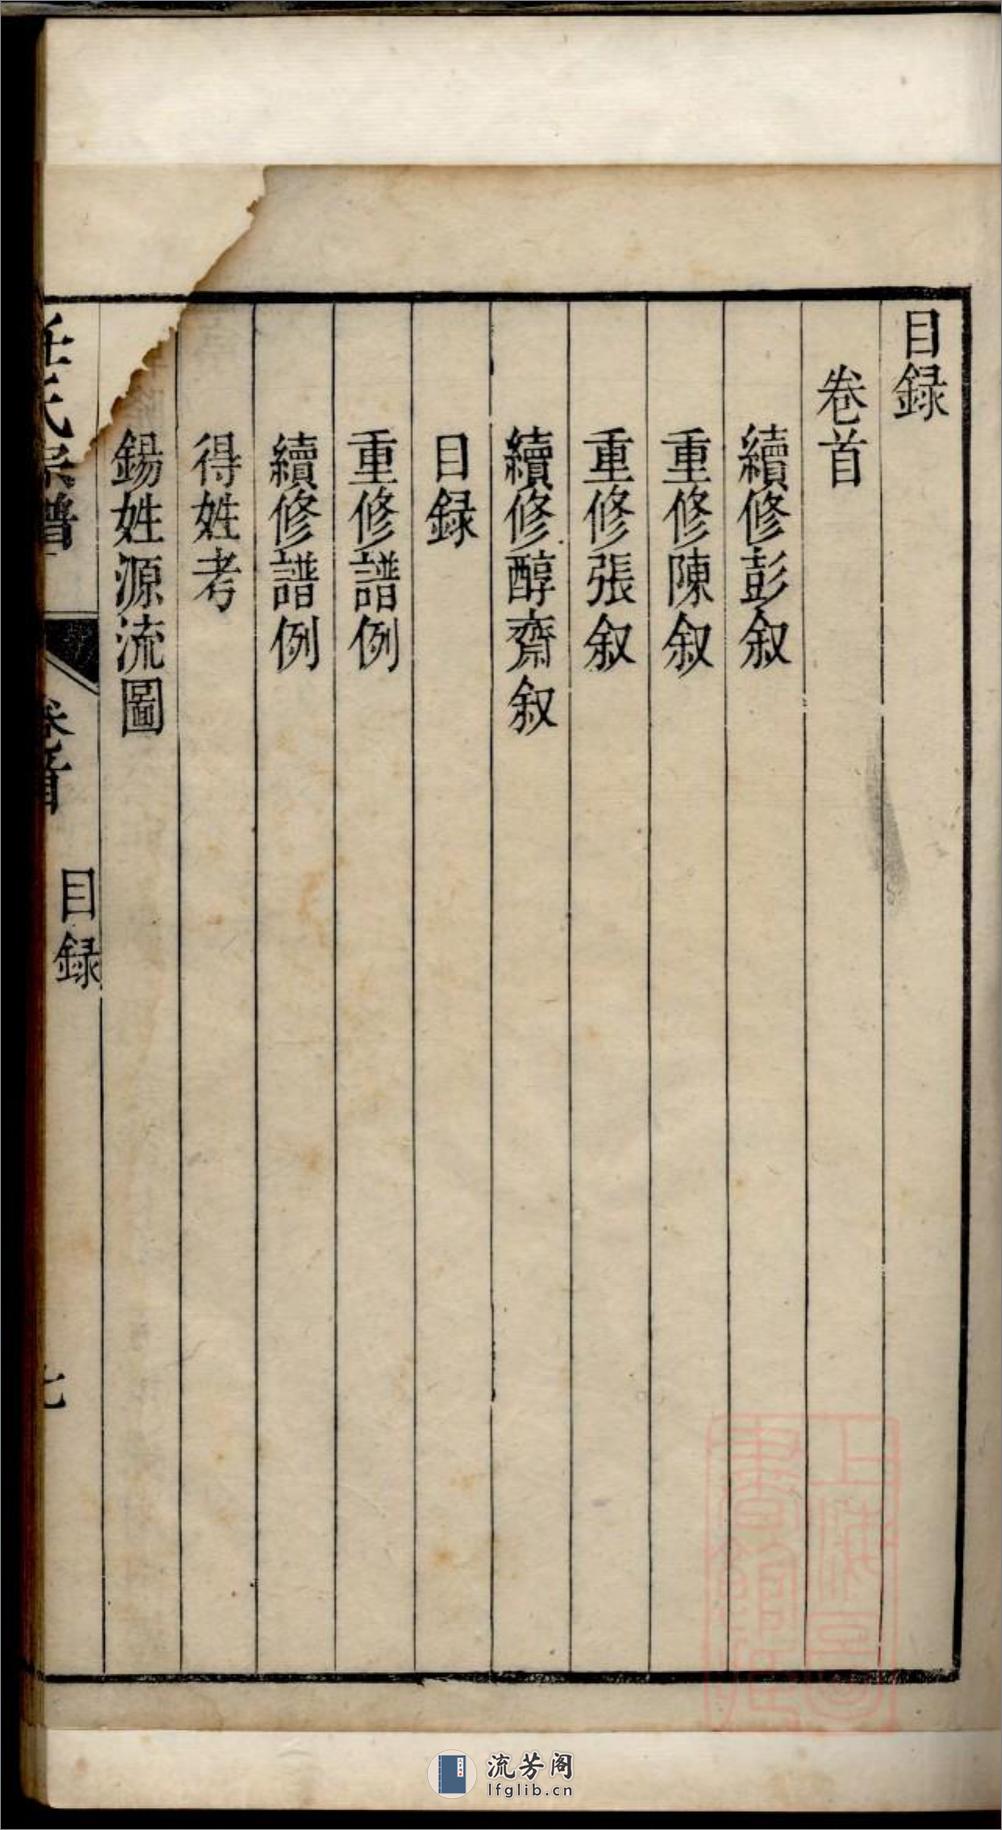 目録
卷首
續修彭叙
重修陳叙
重修張叙
續修醇齋叙
目録
重修譜例
續修譜例
得姓考
錫姓源流圖
任氏宗譜
卷首
目録
七
上海圖
書館藏
流芳阁
lfglib.cn